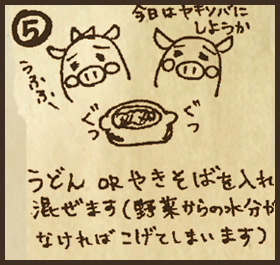 ⑤
今日はヤキソバに
しようか
うふふ
ぐっ
ぐっ
うどん OR やきそばを入れ
混ぜます(野菜からの水分が
なければこげてしまいます)